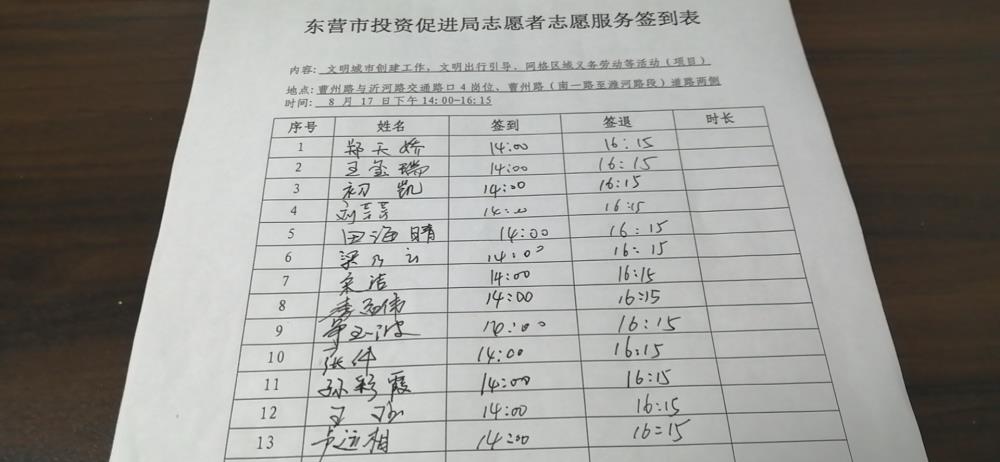 东营市投资促进局志愿者志愿服务签到表
内容: 文明城市创建工作、文明出行引导、网格区域义务劳动等活动（项目）
地点: 曹州路与沂河路交通路口4岗位、曹州路（南一路至潍河路段）道路两侧
时间: 8 月 17 日下午 14:00-16:15
序号 姓名 签到 签退 时长
1 郑天娇 14:00 16:15
2 王玺瑞 14:00 16:15
3 初凯 14:00 16:15
4 刘芸芸 14:00 16:15
5 田海晴 14:00 16:15
6 梁乃云 14:00 16:15
7 宋洁 14:00 16:15
8 14:00 16:15
9 14:00 16:15
10 张伟 14:00 16:15
11 孙彩霞 14:00 16:15
12 王 14:00 16:15
13 卞运相 14:00 16:15